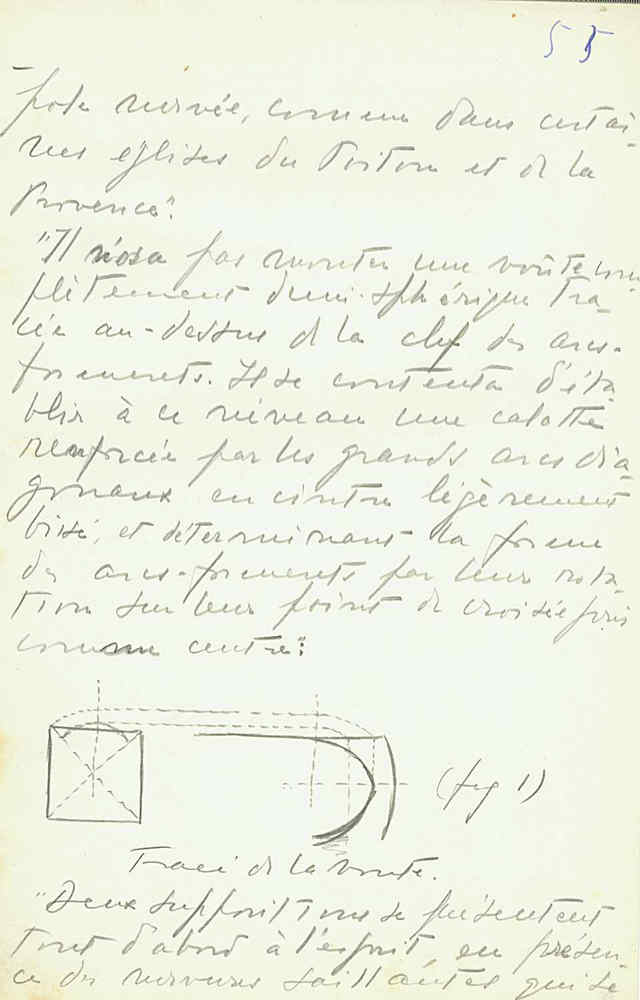 55
pole nervée, comme dans certai-
nes églises du Poitou et de la
Provence".
"Il n'osa pas monter une voûte com
plètement demi-sphérique tra-
cée au-dessus de la clef des arcs-
formerets. Il se contenta d'éta-
blir à ce niveau une calotte
renforcée par les grands arcs dia-
gonaux en cintre légèrement
brisé, et déterminant la forme
des arcs-formerets par leur rota-
tion sur leur point de croisée pris
comme centre":
(fig 1)
Tracé de la voute.
"Deux suppositions se présentent
tout d'abord à l'esprit, en présen-
ce des nervures saillantes qui se